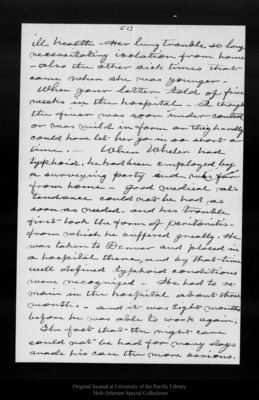 (2)
ill health - Her lung trouble so long
necessitating isolation from home
- also the other sick times that
came when she was younger -
When your letter told of five
weeks in the hospital - I thought
the fever was soon under control
or was mild in form or they hardly
could have let her go in so short a
time - - When Wheler had
typhoid, he had been employed by
a surveying party and was far
from home - good medical at-
tendance could not be had as
soon as needed - and his trouble
first took the form of peritonitis -
from which he suffered greatly. He
was taken to Denver and placed in
a hospital there, and by that time
well defined typhoid conditions
were recognized - He had to re-
main in the hospital about three
months - and it was eight months
before he was able to work again.
The fact that the right care
could not be had for many days
made his case the more serious.
Original located at University of the Pacific Library
Holt-Atherton Special Collections